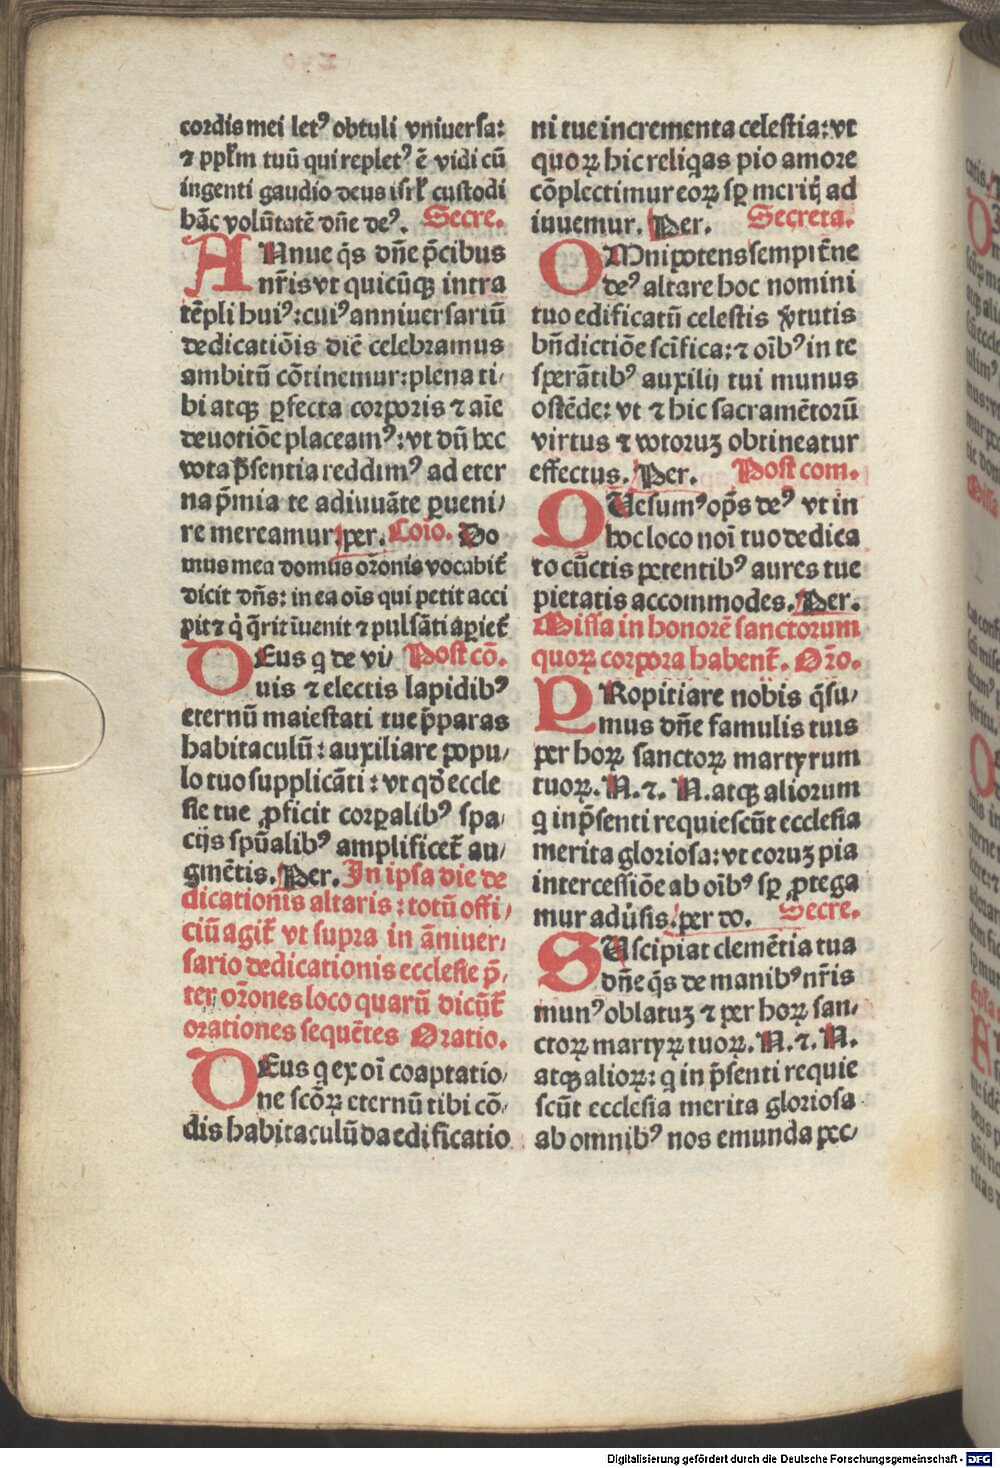 cordis mei letꝰ obtuli vniuersa:
⁊ ppl̄m tuū qui repletꝰ ē vidi cū
ingenti gaudio deus isrl̄ custodi
hāc volūtatē dn̄e deꝰ. Secre.
ANnue q̄s dn̄e p̄cibus
nr̄is vt quicūqꝫ intra
tēpli huiꝰ: cuiꝰ anniuersariū
dedicatiōis diē celebramus
ambitū cōtinemur: plena ti/
bi atqꝫ ꝑfecta corporis ⁊ aīe
deuotiōe placeamꝰ: vt dū hec
vota p̄sentia reddimꝰ ad eter
na p̄mia te adiuuāte ꝑueni/
re mereamur. per. Coīo. Do
mus mea domus or̄onis vocabit̄
dicit dn̄s: in ea oīs qui petit acci
pit ⁊ q̇ q̄rit īuenit ⁊ pulsāti aꝑiet̄
DEus q de vi/ Post cō.
uis ⁊ electis lapidibꝰ
eternū maiestati tue p̄paras
habitaculū: auxiliare popu/
lo tuo supplicāti: vt qd̄ eccle
sie tue ꝓficit corꝑalibꝰ spa/
cijs spūalibꝰ amplificet̄ au/
gmētis. Per. In ipsa die de
dicationis altaris: totū offi/
ciū agit̄ vt supra in āniuer/
sario dedicationis ecclesie p̄/
ter or̄ones loco quarū dicūt̄
orationes sequētes Oratio.
DEus q ex oī coaptatio/
ne scōꝝ eternū tibi cō/
dis habitaculū da edificatio
ni tue incrementa celestia: vt
quoꝝ hic reliqas pio amore
cōplectimur eoꝝ sꝑ meritꝭ ad
iuuemur. Per. Secreta.
OMnipotens sempit̄ne
deꝰ altare hoc nomini
tuo edificatū celestis v̓tutis
bn̄dictiōe scīfica: ⁊ oībꝰ in te
sperātibꝰ auxilij tui munus
ostēde: vt ⁊ hic sacramētorū
virtus ⁊ votoruꝫ obtineatur
effectus. Per. Post com.
QUesumꝰ op̄s deꝰ vt in
hoc loco noī tuo dedica
to cūctis petentibꝰ aures tue
pietatis accommodes. Per.
Missa in honorē sanctorum
quoꝝ corpora habent̄. Or̄o.
PRopitiare nobis q̄su/
mus dn̄e famulis tuis
per hoꝝ sanctoꝝ martyrum
tuoꝝ. N. ⁊. N. atqꝫ aliorum
q in p̄senti requiescūt ecclesia
merita gloriosa: vt eoruꝫ pia
intercessiōe ab oībꝰ sꝑ ꝓtega
mur adu̓sis. per do. Secre.
SUscipiat clemētia tua
dn̄e q̄s de manibꝰ nr̄is
munꝰ oblatuꝫ ⁊ per hoꝝ san/
ctoꝝ martyꝝ tuoꝝ. N. ⁊. N.
atqꝫ alioꝝ: q in p̄senti requie
scūt ecclesia merita gloriosa
ab omnibꝰ nos emunda pec/
Digitalisierung gefördert durch die Deutsche Forschungsgemeinschaft - DFG